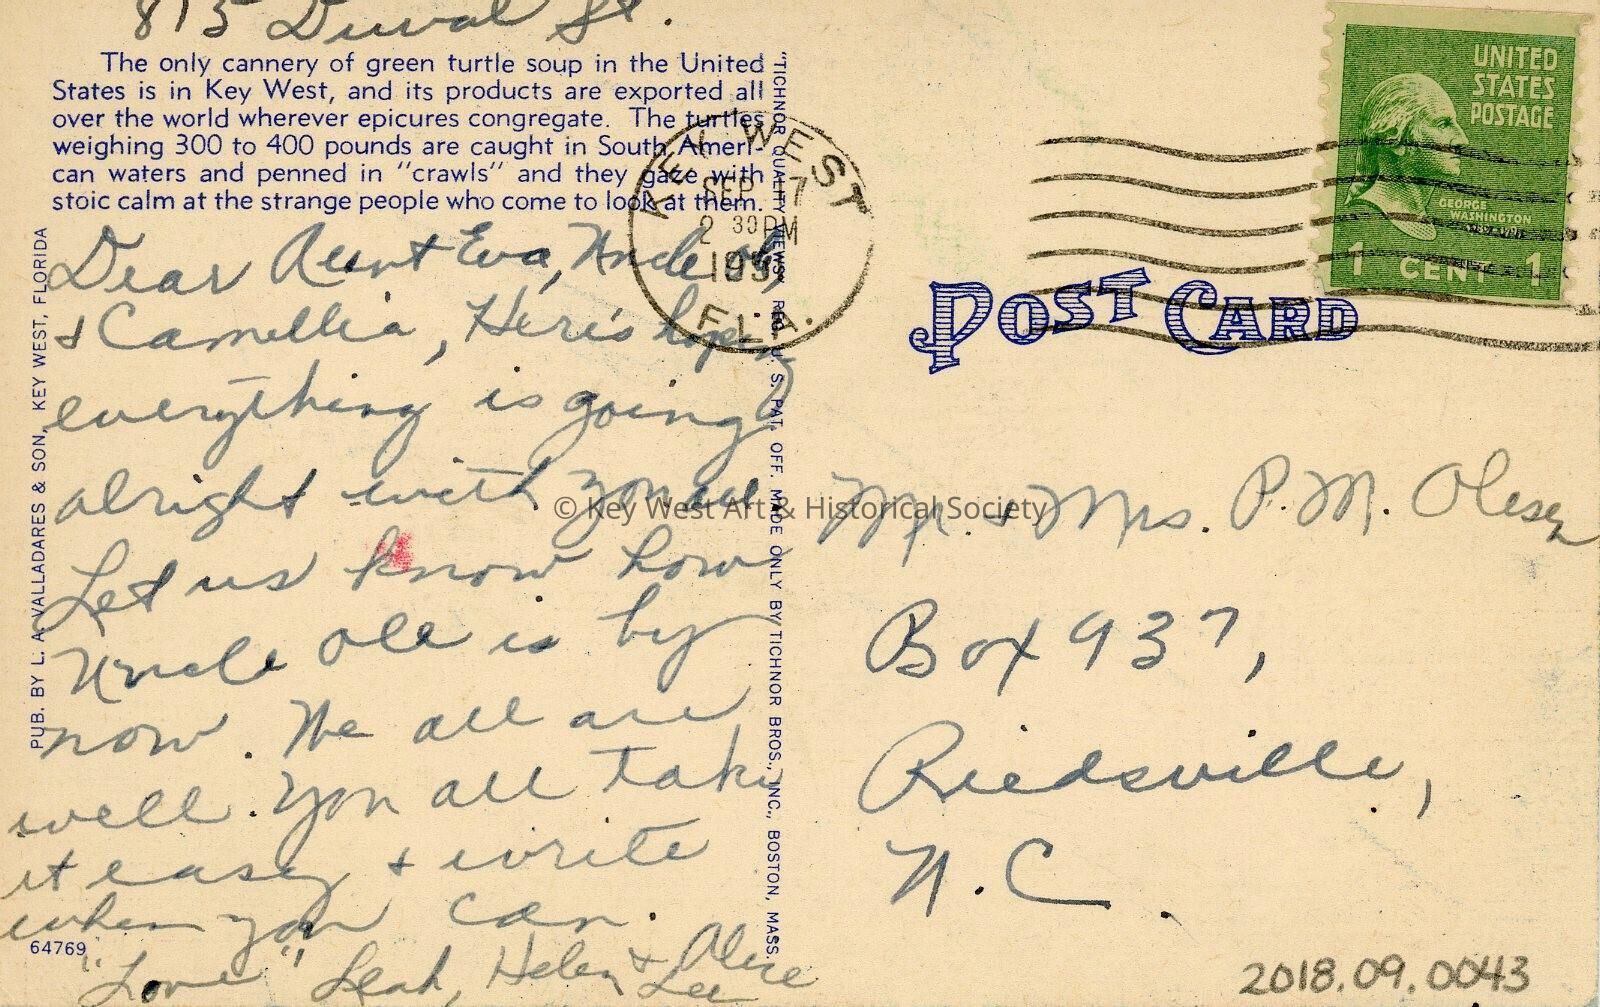 815 Duval St.
The only cannery of green turtle soup in the United
States is in Key West, and its products are exported all
over the world wherever epicures congregate. The turtles
weighing 300 to 400 pounds are caught in South Ameri-
can waters and penned in "crawls" and they gaze with
stoic calm at the strange people who come to look at them.
Dear Aunt Eva, Uncle Ole,
& Camellia, Here's hopen
everything is going
alright with you all
Let us know how
Uncle Ole is by
now. We all are
well. You all take
it easy & write
when you can.
"Love" Leah, Helen & Alice
Lee
64769
PUB. BY L. A. VALLADARES & SON, KEY WEST, FLORIDA
"TICHNOR QUALITY VIEWS," REG. U. S. PAT. OFF. MADE ONLY BY TICHNOR BROS., INC., BOSTON, MASS.
KEY WEST
SEP 17
2 30 PM
FLA.
UNITED
STATES
POSTAGE
GEORGE
WASHINGTON
1 CENT 1
POST CARD
© Key West Art & Historical Society
Mr. & Mrs. P. M. Olesen
Box 937,
Riedsville,
N.C.
2018.09.0043